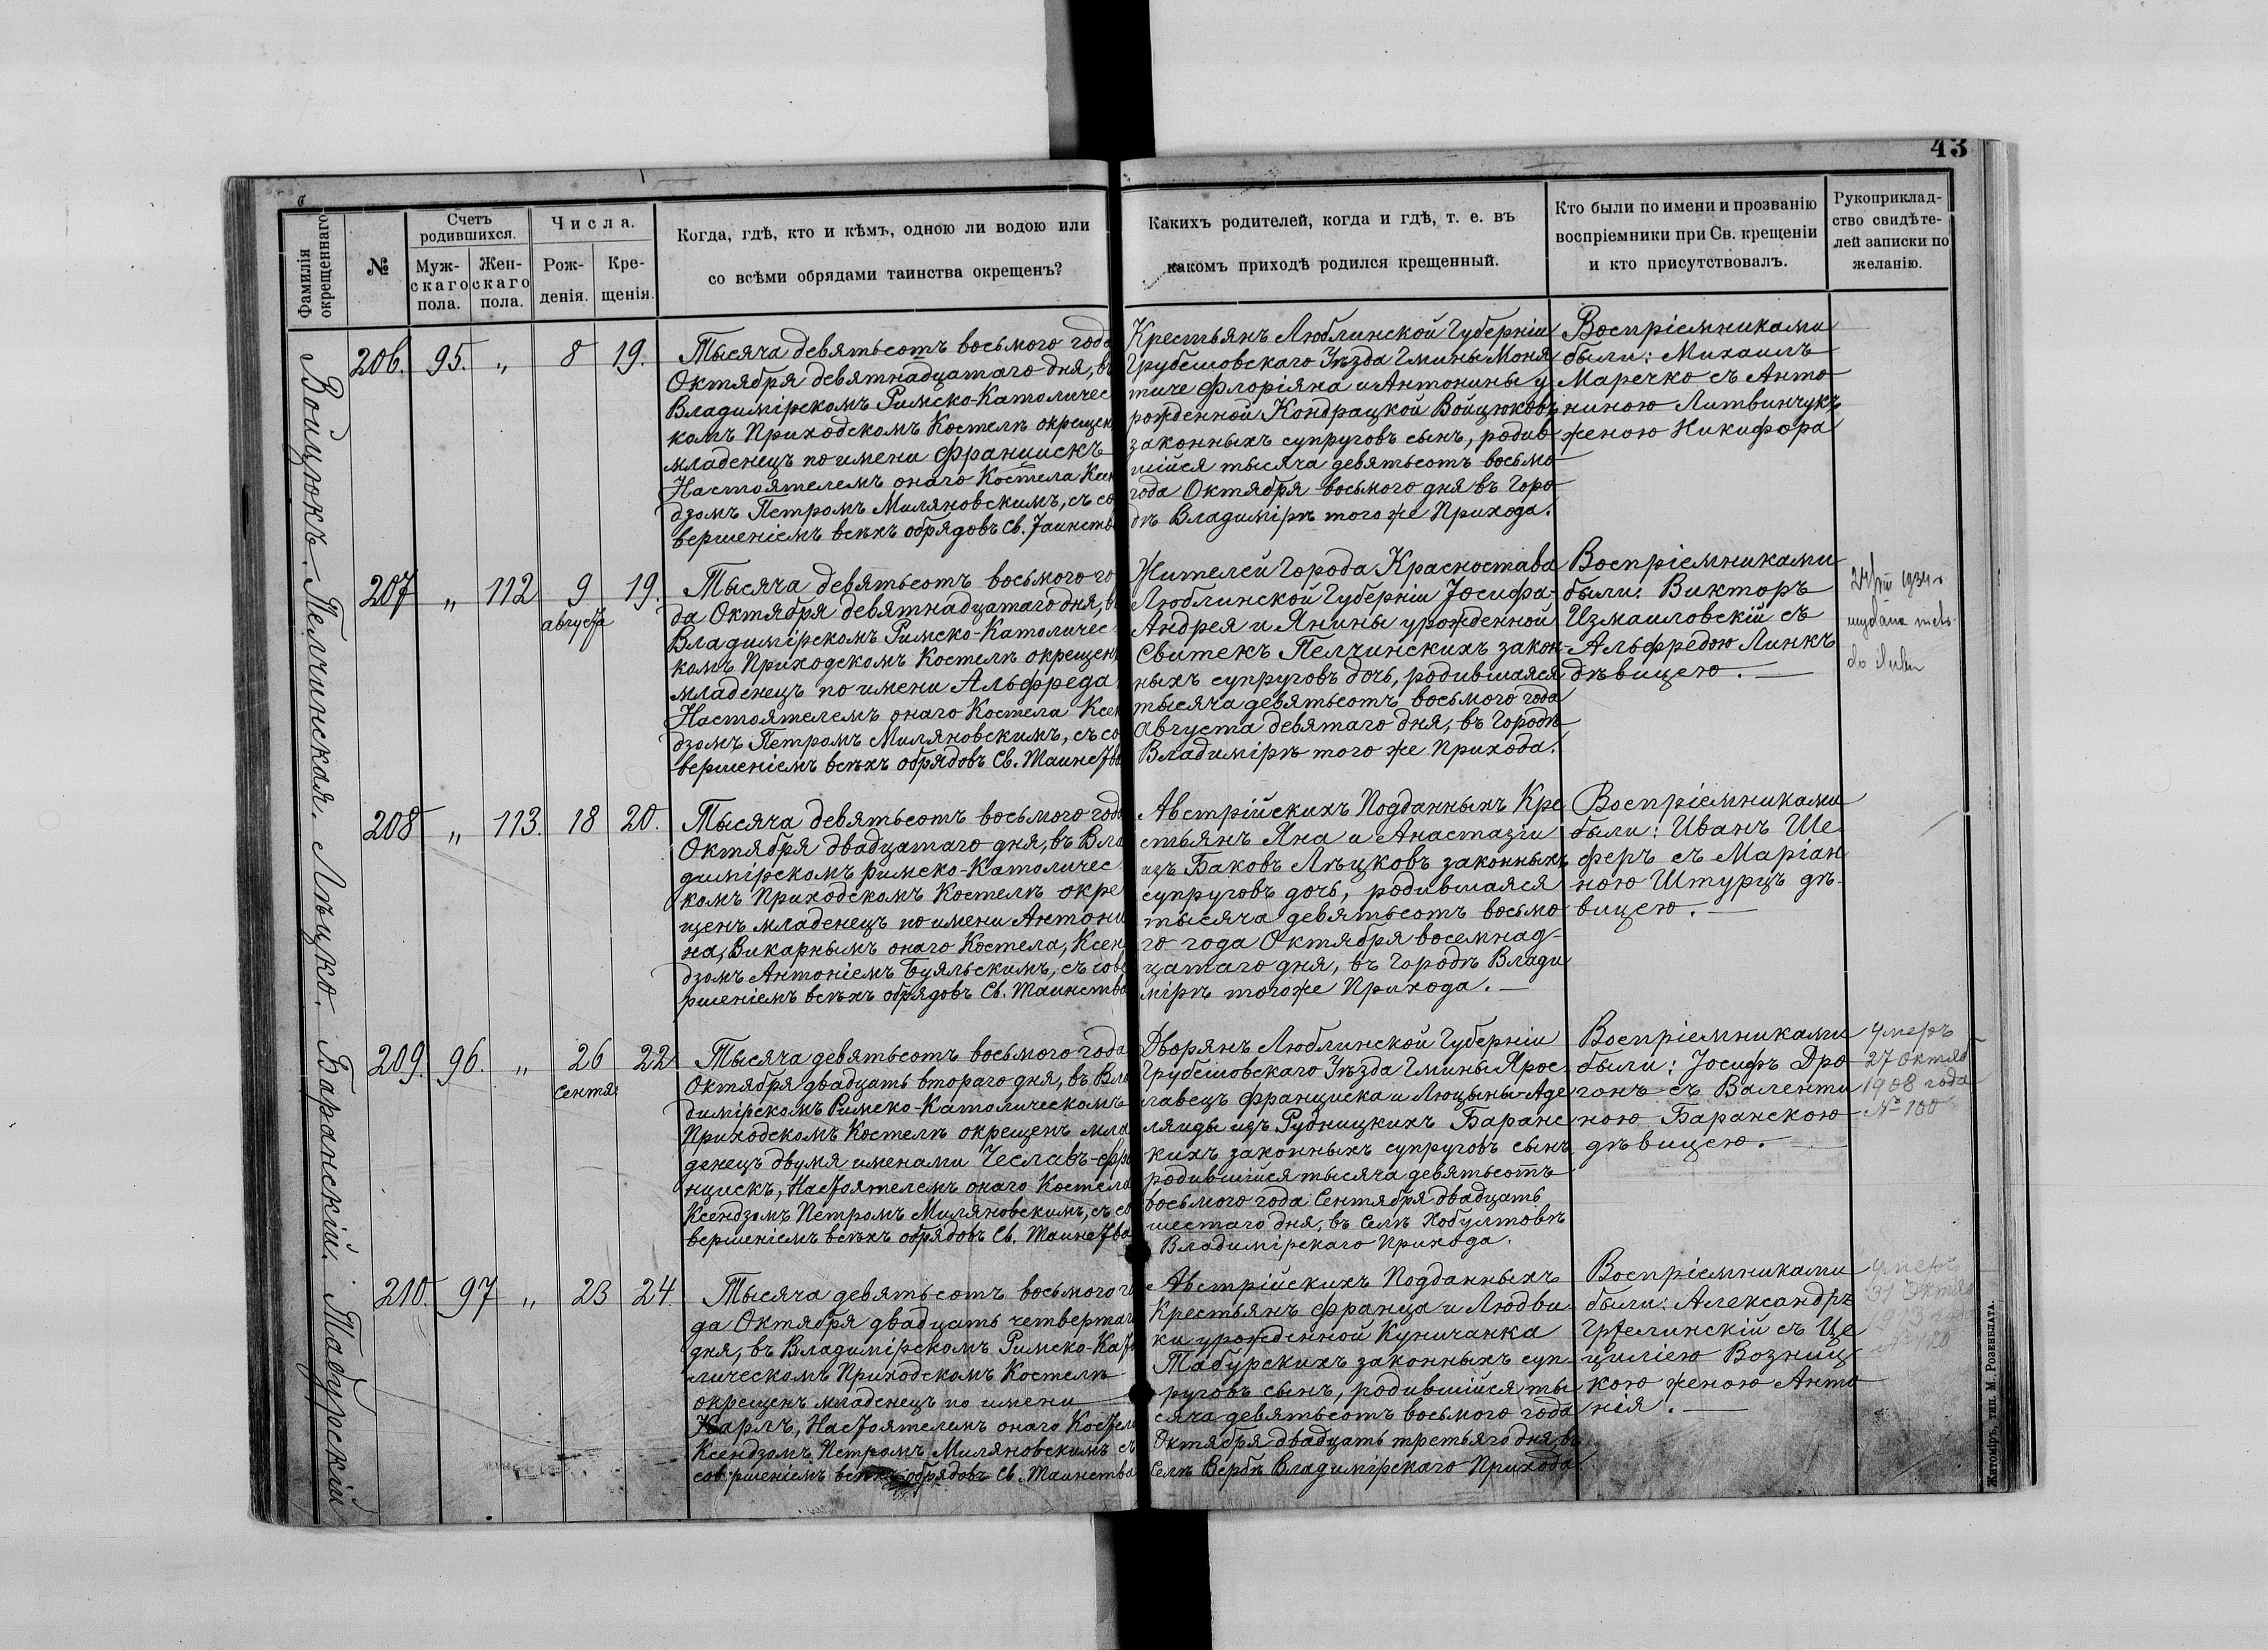 43
Фамилія окрещеннаго
№
Счетъ родившихся.
Муж-скаго пола.
Жен-скаго пола.
Числа.
Рож-денія.
Кре-щенія.
Когда, гдѣ, кто и кѣмъ, одною ли водою или
со всѣми обрядами таинства окрещенъ?
Какихъ родителей, когда и гдѣ, т. е. въ
какомъ приходѣ родился крещенный.
Кто были по имени и прозванію
воспріемники при Св. крещеніи
и кто присутствовалъ.
Рукоприклад-
ство свидѣте-
лей записки по
желанію.
Войцюкъ.
206. 95. „ 8 19.
Тысяча девятьсотъ восьмого года
Октября девятнадцатаго дня, въ
Владимірскомъ Римско-Католичес
комъ Приходскомъ Костелѣ окрещен
младенецъ по имени Францискъ
Настоятелемъ онаго Костела Ксен
дзомъ Петромъ Миляновскимъ, съ со
вершеніемъ всѣхъ обрядовъ Св. Таинств
Крестьянъ Люблинской Губерніи
Грубешовскаго Уѣзда Гмины Моня
тиче Флоріяна и Антонины у
рожденной Кондрацкой Войцюковъ
законныхъ супруговъ сынъ, родив
шійся тысяча девятьсотъ восьмо
года Октября восьмого дня въ Горо
дѣ Владимірѣ того же Прихода.
Воспріемниками
были: Михаилъ
Маречко съ Анто
ниною Литвинчукъ
женою Никифора
Пелчинская.
207 „ 112 9 августа 19.
Тысяча девятьсотъ восьмого го
да Октября девятнадцатаго дня, в
Владимірскомъ Римско-Католичес
комъ Приходскомъ Костелѣ окрещен
младенецъ по имени Альфреда
Настоятелемъ онаго Костела Ксен
дзомъ Петромъ Миляновскимъ, съ со
вершеніемъ всѣхъ обрядовъ Св. Таинства
Жителей Города Красностава
Люблинской Губерніи Іосифа-
Андрея и Янины урожденной
Свитекъ Пелчинскихъ закон-
ныхъ супруговъ дочь, родившаяся
тысяча девятьсотъ восьмого года
Августа девятаго дня, въ Городѣ
Владимірѣ того же Прихода.
Воспріемниками
были: Викторъ
Измаиловскій съ
Альфредою Линкъ
дѣвицею.
1934 r.
wydana
Лѣцко.
208 „ 113. 18 20.
Тысяча девятьсотъ восьмого года
Октября двадцатаго дня, въ Вла
димірскомъ Римско-Католичес
комъ Приходскомъ Костелѣ окре
щенъ младенецъ по имени Антони
на, Викарнымъ онаго Костела, Ксен
дзомъ Антоніемъ Буяльскимъ, съ сове
ршеніемъ всѣхъ обрядовъ Св. Таинства
Австрійскихъ Подданныхъ Кре
стьянъ Яна и Анастазіи
изъ Баковъ Лѣцковъ законныхъ
супруговъ дочь, родившаяся
тысяча девятьсотъ восьмо
го года Октября восемнад-
цатаго дня, въ Городѣ Влади
мірѣ тогоже Прихода.
Воспріемниками
были: Иванъ Ше
феръ съ Маріан
ною Штурцъ дѣ-
вицею.
Баранскій.
209. 96. „ 26 сентя. 22
Тысяча девятьсотъ восьмого года
Октября двадцать втораго дня, въ Вла
димірскомъ Римско-Католическомъ
Приходскомъ Костелѣ окрещенъ мла
денецъ двумя именами Чеславъ-Фра
нцискъ, Настоятелемъ онаго Костела
Ксендзомъ Петромъ Миляновскимъ, съ со
вершеніемъ всѣхъ обрядовъ Св. Таинства
Дворянъ Люблинской Губерніи
Грубешовскаго Уѣзда Гмины Ярос
лавецъ Франциска и Люцыны-Аде
ляиды изъ Рудницкихъ Баранс
кихъ законныхъ супруговъ сынъ
родившійся тысяча девятьсотъ
восьмого года Сентября двадцать
шестаго дня, въ Селѣ Хобултовѣ
Владимірскаго Прихода.
Воспріемниками
были: Іосифъ Дро
гонъ съ Валенти
ною Баранскою
дѣвицею.
Умеръ
27 Октяб
1908 года
№ 100
Табурскій
210. 97 „ 23 24.
Тысяча девятьсотъ восьмого го
да Октября двадцать четвертаг
дня, въ Владимірскомъ Римско-Като
лическомъ Приходскомъ Костелѣ
окрещенъ младенецъ по имени
Карлъ, Настоятелемъ онаго Костела
Ксендзомъ Петромъ Миляновскимъ съ
совершеніемъ всѣхъ обрядовъ Св. Таинства
Австрійскихъ Подданныхъ
Крестьянъ Франца и Людви
ки урожденной Куничанка
Табурскихъ законныхъ суп
руговъ сынъ, родившійся ты
сяча девятьсотъ восьмого года
Октября двадцать третьяго дня, въ
Селѣ Вербѣ Владимірскаго Прихода
Воспріемниками
были: Александръ
Гртелинскій съ Це
циліею Возниц
кою женою Анто
нія.
Умеръ
31 Октяб
1913 года
№ 120
Житоміръ, тип. М. Розенблата.